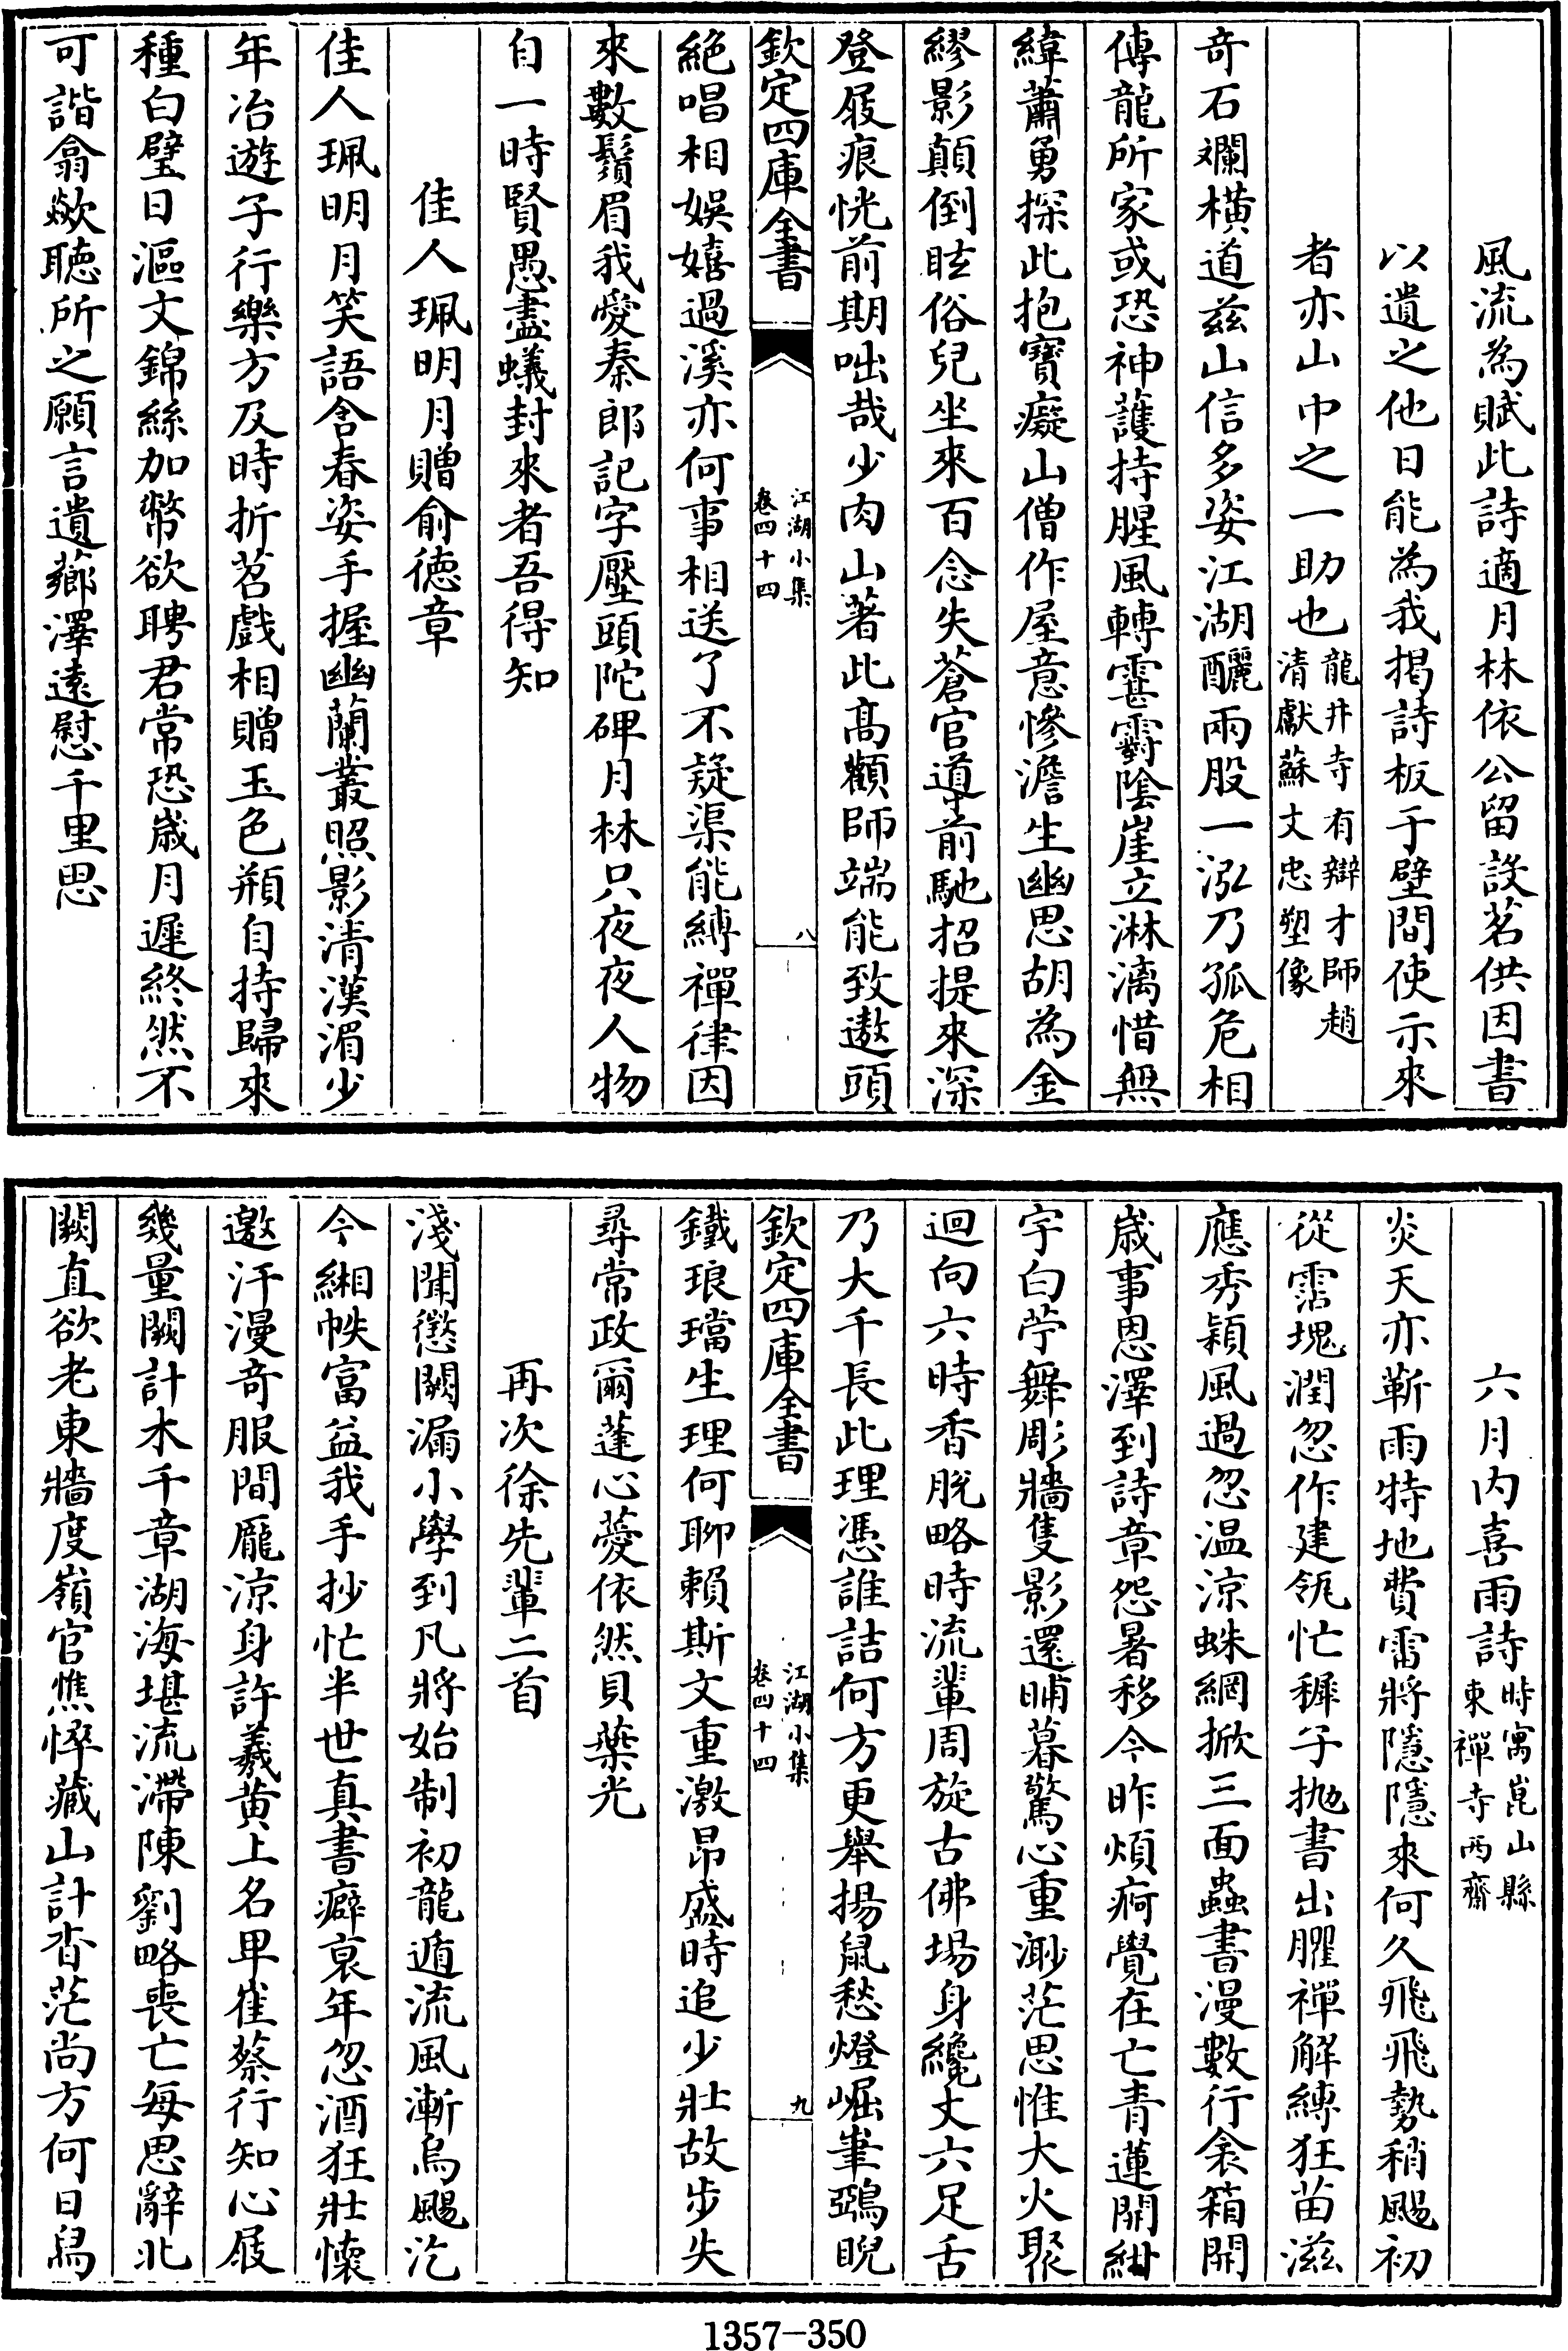 風流為賦此詩適月林依公留設茗供因書
以遺之他日能為我揭詩板于壁間使示來
者亦山中之一助也龍井寺有辯才師趙清獻蘇文忠塑像
奇石斕橫道茲山信多姿江湖釃兩股一泓乃孤危相
傳龍所家或恐神護持腥風轉霮䨴陰崖立淋漓惜無
緯蕭勇探此抱寶癡山僧作屋意慘澹生幽思胡為金
繆影顛倒眩俗兒坐來百念失蒼官導前馳招提來深
登屐痕恍前期咄哉少肉山著此高顴師端能致遨頭
欽定四庫全書
江湖小集
卷四十四
八
絕唱相娛嬉過溪亦何事相送了不疑渠能縛禪律因
來數鬚眉我愛秦郎記字壓頭陀碑月林只夜夜人物
自一時賢愚盡蟻封來者吾得知
佳人珮明月贈俞德章
佳人珮明月笑語含春姿手握幽蘭叢照影清漢湄少
年冶遊子行樂方及時折苕戲相贈玉色頩自持歸來
種白璧日漚文錦絲加幣欲聘君常恐歲月遲終然不
可諧翕歘聽所之願言遺薌澤遠慰千里思
六月內喜雨詩時寓崑山縣東禪寺西齋
炎天亦靳雨特地費雷將隱隱來何久飛飛勢稍颺初
從霑塊潤忽作建瓴忙穉子拋書出臞禪解縛狂苗滋
應秀穎風過忽溫涼蛛網掀三面蟲書漫數行衾箱開
歲事恩澤到詩章怨暑移今昨煩痾覺在亡青蓮開紺
宇白苧舞彫牆隻影還晡暮驚心重渺茫思惟大火聚
迴向六時香脫略時流輩周旋古佛場身纔丈六足舌
乃大千長此理憑誰詰何方更舉揚鼠愁燈崛筆鵶睨
欽定四庫全書
江湖小集
卷四十四
九
鐵琅璫生理何聊賴斯文重激昂盛時追少壯故步失
尋常政爾蓬心薆依然貝藥光
再次徐先輩二首
淺聞慙闕漏小學到凡將始制初龍遁流風漸烏颺汔
今緗帙富益我手抄忙半世真書癖哀年忽酒狂壯懷
邀汗漫奇服間厖涼身許羲黃上名卑崔蔡行知心屐
幾量闕計木千章湖海堪流滯陳劉略喪亡每思辭北
闕直欲老東牆度嶺官憔悴藏山計杳茫尚方何日舄
1357-350